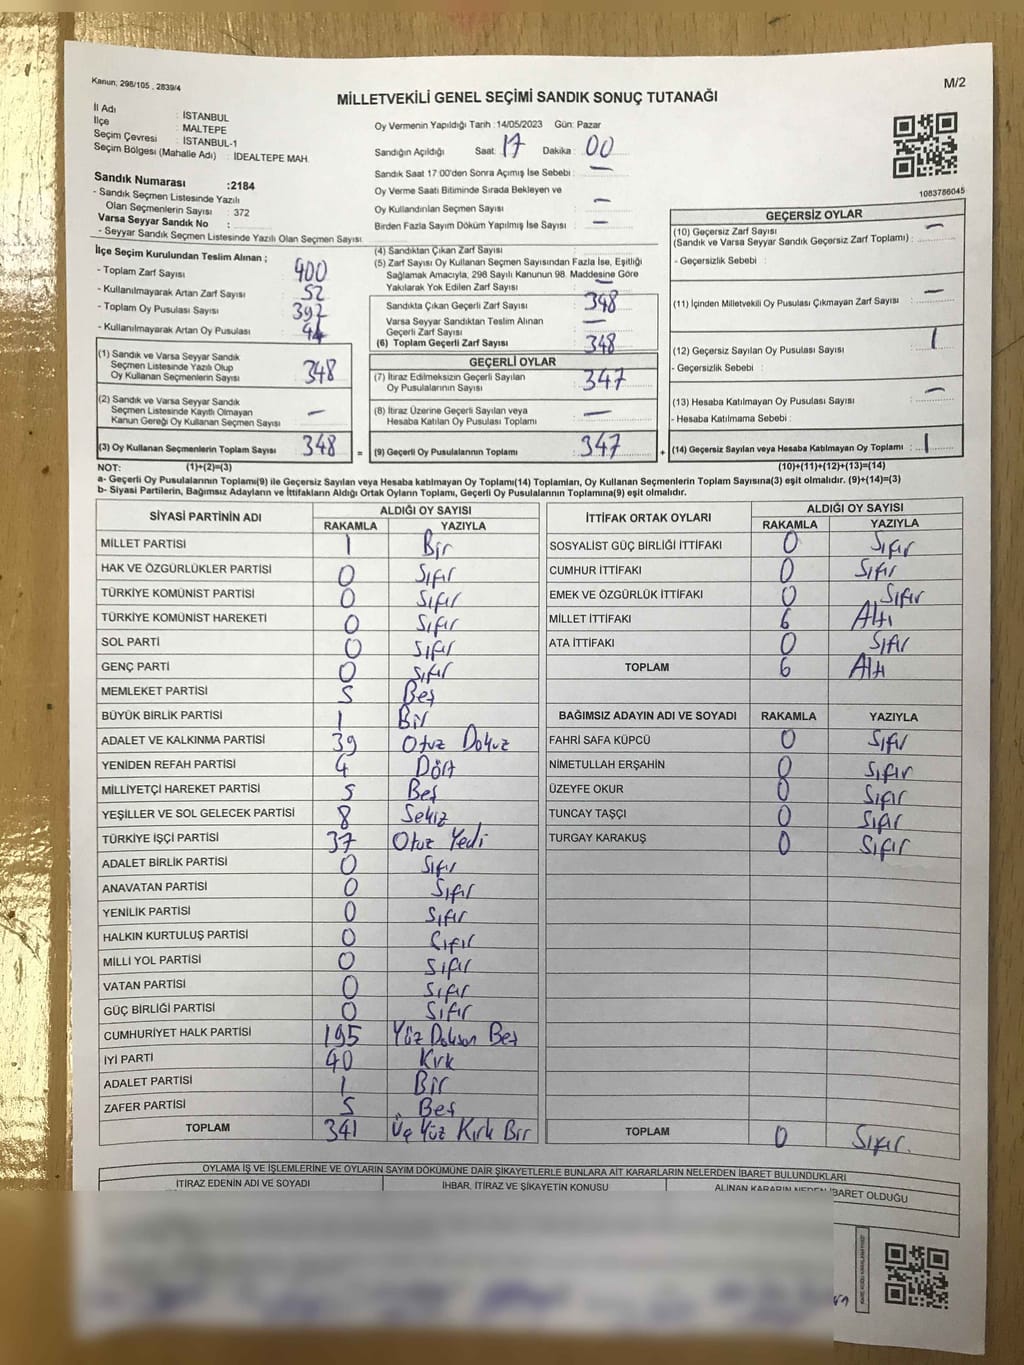 Kanun, 298/105 , 2839/4
M/2
MİLLETVEKİLİ GENEL SEÇİMİ SANDIK SONUÇ TUTANAĞI
İl Adı : İSTANBUL
İlçe : MALTEPE
Seçim Çevresi : İSTANBUL-1
Seçim Bölgesi (Mahalle Adı) : IDEALTEPE MAH.
Sandık Numarası :2184
- Sandık Seçmen Listesinde Yazılı
Olan Seçmenlerin Sayısı : 372
Varsa Seyyar Sandık No :
- Seyyar Sandık Seçmen Listesinde Yazılı Olan Seçmen Sayısı:
Oy Vermenin Yapıldığı Tarih :14/05/2023 Gün: Pazar
Sandığın Açıldığı Saat: 17 Dakika : 00
Sandık Saat 17:00'den Sonra Açımış İse Sebebi : —
Oy Verme Saati Bitiminde Sırada Bekleyen ve
Oy Kullandırılan Seçmen Sayısı : —
Birden Fazla Sayım Döküm Yapılmış İse Sayısı : —
1083786045
İlçe Seçim Kurulundan Teslim Alınan ;
- Toplam Zarf Sayısı : 400
- Kullanılmayarak Artan Zarf Sayısı : 52
- Toplam Oy Pusulası Sayısı : 392
- Kullanılmayarak Artan Oy Pusulası : 44
(1) Sandık ve Varsa Seyyar Sandık
Seçmen Listesinde Yazılı Olup
Oy Kullanan Seçmenlerin Sayısı : 348
(2) Sandık ve Varsa Seyyar Sandık
Seçmen Listesinde Kayıtlı Olmayan
Kanun Gereği Oy Kullanan Seçmen Sayısı : —
(3) Oy Kullanan Seçmenlerin Toplam Sayısı : 348
(4) Sandıktan Çıkan Zarf Sayısı :
(5) Zarf Sayısı Oy Kullanan Seçmen Sayısından Fazla İse, Eşitliği
Sağlamak Amacıyla, 298 Sayılı Kanunun 98. Maddesine Göre
Yakılarak Yok Edilen Zarf Sayısı : —
Sandıkta Çıkan Geçerli Zarf Sayısı : 348
Varsa Seyyar Sandıktan Teslim Alınan
Geçerli Zarf Sayısı : —
(6) Toplam Geçerli Zarf Sayısı : 348
GEÇERLİ OYLAR
(7) İtiraz Edilmeksizin Geçerli Sayılan
Oy Pusulalarının Sayısı : 347
(8) İtiraz Üzerine Geçerli Sayılan veya
Hesaba Katılan Oy Pusulası Toplamı : —
= (9) Geçerli Oy Pusulalarının Toplamı : 347
GEÇERSİZ OYLAR
(10) Geçersiz Zarf Sayısı
(Sandık ve Varsa Seyyar Sandık Geçersiz Zarf Toplamı) : —
- Geçersizlik Sebebi :
(11) İçinden Milletvekili Oy Pusulası Çıkmayan Zarf Sayısı : —
(12) Geçersiz Sayılan Oy Pusulası Sayısı : 1
- Geçersizlik Sebebi :
(13) Hesaba Katılmayan Oy Pusulası Sayısı : —
- Hesaba Katılmama Sebebi :
+ (14) Geçersiz Sayılan veya Hesaba Katılmayan Oy Toplamı : 1
NOT: (1)+(2)=(3) (10)+(11)+(12)+(13)=(14)
a- Geçerli Oy Pusulalarının Toplamı(9) ile Geçersiz Sayılan veya Hesaba Katılmayan Oy Toplamı(14) Toplamları, Oy Kullanan Seçmenlerin Toplam Sayısına(3) eşit olmalıdır. (9)+(14)=(3)
b- Siyasi Partilerin, Bağımsız Adayların ve İttifakların Aldığı Ortak Oyların Toplamı, Geçerli Oy Pusulalarının Toplamına(9) eşit olmalıdır.
SİYASİ PARTİNİN ADI ALDIĞI OY SAYISI
RAKAMLA YAZIYLA
MİLLET PARTİSİ 1 Bir
HAK VE ÖZGÜRLÜKLER PARTİSİ 0 Sıfır
TÜRKİYE KOMÜNİST PARTİSİ 0 Sıfır
TÜRKİYE KOMÜNİST HAREKETİ 0 Sıfır
SOL PARTİ 0 Sıfır
GENÇ PARTİ 0 Sıfır
MEMLEKET PARTİSİ 5 Beş
BÜYÜK BİRLİK PARTİSİ 1 Bir
ADALET VE KALKINMA PARTİSİ 39 Otuz Dokuz
YENİDEN REFAH PARTİSİ 4 Dört
MİLLİYETÇİ HAREKET PARTİSİ 5 Beş
YEŞİLLER VE SOL GELECEK PARTİSİ 8 Sekiz
TÜRKİYE İŞÇİ PARTİSİ 37 Otuz Yedi
ADALET BİRLİK PARTİSİ 0 Sıfır
ANAVATAN PARTİSİ 0 Sıfır
YENİLİK PARTİSİ 0 Sıfır
HALKIN KURTULUŞ PARTİSİ 0 Sıfır
MİLLİ YOL PARTİSİ 0 Sıfır
VATAN PARTİSİ 0 Sıfır
GÜÇ BİRLİĞİ PARTİSİ 0 Sıfır
CUMHURİYET HALK PARTİSİ 195 Yüz Doksan Beş
İYİ PARTİ 40 Kırk
ADALET PARTİSİ 1 Bir
ZAFER PARTİSİ 5 Beş
TOPLAM 341 Üç Yüz Kırk Bir
İTTİFAK ORTAK OYLARI ALDIĞI OY SAYISI
RAKAMLA YAZIYLA
SOSYALİST GÜÇ BİRLİĞİ İTTİFAKI 0 Sıfır
CUMHUR İTTİFAKI 0 Sıfır
EMEK VE ÖZGÜRLÜK İTTİFAKI 0 Sıfır
MİLLET İTTİFAKI 6 Altı
ATA İTTİFAKI 0 Sıfır
TOPLAM 6 Altı
BAĞIMSIZ ADAYIN ADI VE SOYADI RAKAMLA YAZIYLA
FAHRİ SAFA KÜPCÜ 0 Sıfır
NİMETULLAH ERŞAHİN 0 Sıfır
ÜZEYFE OKUR 0 Sıfır
TUNCAY TAŞÇI 0 Sıfır
TURGAY KARAKUŞ 0 Sıfır
TOPLAM 0 Sıfır.
OYLAMA İŞ VE İŞLEMLERİNE VE OYLARIN SAYIM DÖKÜMÜNE DAİR ŞİKAYETLERLE BUNLARA AİT KARARLARIN NELERDEN İBARET BULUNDUKLARI
İTİRAZ EDENİN ADI VE SOYADI İHBAR, İTİRAZ VE ŞİKAYETİN KONUSU ALINAN KARARIN NEDEN İBARET OLDUĞU